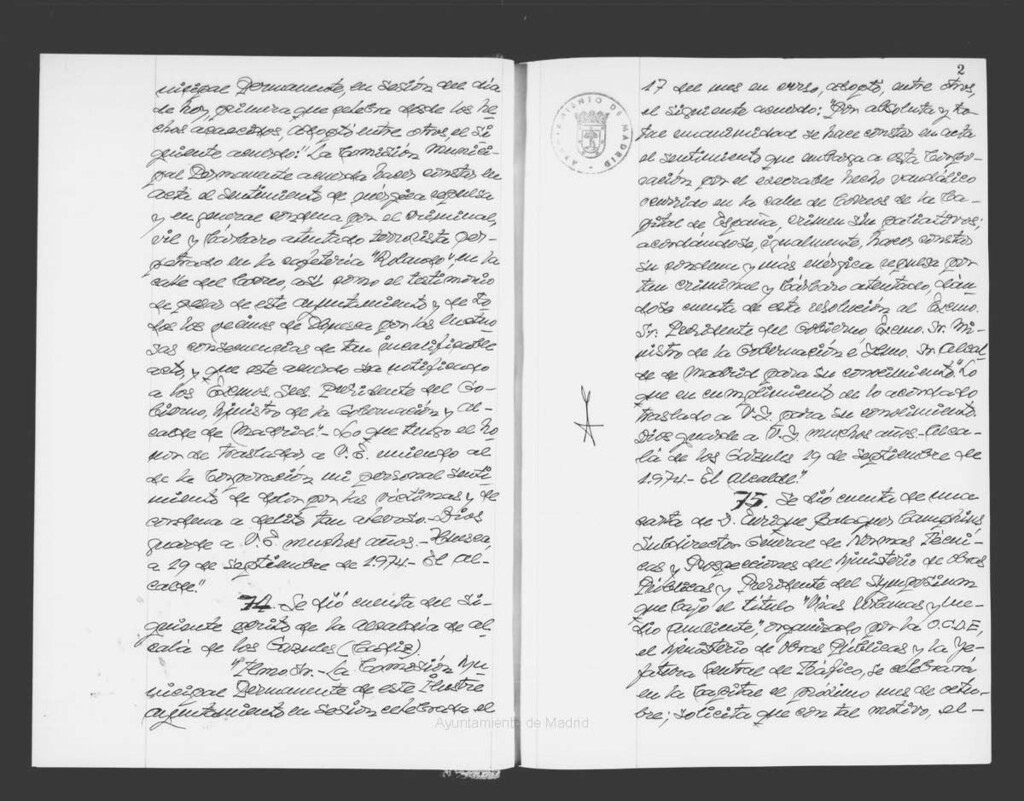 nicipal Permanente, en sesión del día
de hoy, primera que celebra desde los he-
chos acaecidos, adoptó entre otros el si-
guiente acuerdo: "La Comisión Munici-
pal Permanente acuerda hacer constar en
acta el sentimiento de enérgica repulsa
y en general condena por el criminal,
vil y bárbaro atentado terrorista per-
petrado en la cafetería "Rolando", en la
calle del Correo, así como el testimonio
de pesar de este Ayuntamiento y de to-
dos los vecinos de Huesca por las luctuo-
sas consecuencias de tan incalificable
acto, y que este acuerdo sea notificado
a los Excmos. Sres. Presidente del Go-
bierno, Ministro de la Gobernación y Al-
calde de Madrid".- Lo que tengo el ho-
nor de trasladar a V.E. uniendo al
de la Corporación mi personal senti-
miento de dolor por las víctimas y de
condena a delito tan alevoso.- Dios
guarde a V.E. muchos años.- Huesca
a 19 de septiembre de 1.974- El Al-
calde."
74. Se dió cuenta del si-
guiente escrito de la Alcaldía de Al-
calá de los Gazules (Cádiz).
"Ilmo Sr.- La Comisión Mu-
nicipal Permanente de este Ilustre
Ayuntamiento en sesión celebrada el
2
AYUNTAMIENTO DE MADRID
17 del mes en curso, adoptó, entre otros,
el siguiente acuerdo: "Por absoluta y to-
tal unanimidad se hace constar en acta
el sentimiento que embarga a esta Corpo-
ración por el execrable hecho vandálico
ocurrido en la calle de Correos de la Ca-
pital de España, crimen sin paliativos;
acordándose, igualmente, hacer constar
su condena y más enérgica repulsa por
tan criminal y bárbaro atentado, dán-
dose cuenta de esta resolución al Excmo.
Sr. Presidente del Gobierno Excmo. Sr. Mi-
nistro de la Gobernación é Ilmo. Sr. Alcal-
de de Madrid para su conocimiento". Lo
que en cumplimiento de lo acordado
traslado a V.I. para su conocimiento.
Dios guarde a V.I. muchos años.- Alca-
lá de los Gazules 19 de septiembre de
1.974- El Alcalde."
75. Se dió cuenta de una
carta de D. Enrique Balaguer Camphuis
Subdirector General de Normas Técni-
cas y Prospecciones del Ministerio de Obras
Públicas y Presidente del Symposium
que bajo el título "Vías Urbanas y Me-
dio Ambiente", organizado por la O.C.D.E,
el Ministerio de Obras Públicas y la Je-
fatura Central de Tráfico, se celebrará
en la Capital el próximo mes de octu-
bre; solicita que con tal motivo, el-
Ayuntamiento de Madrid